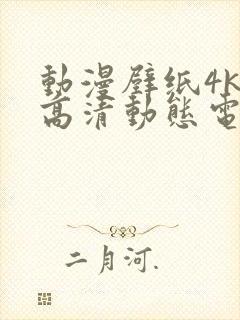 動漫壁纸4K
高清動態電
二月河.